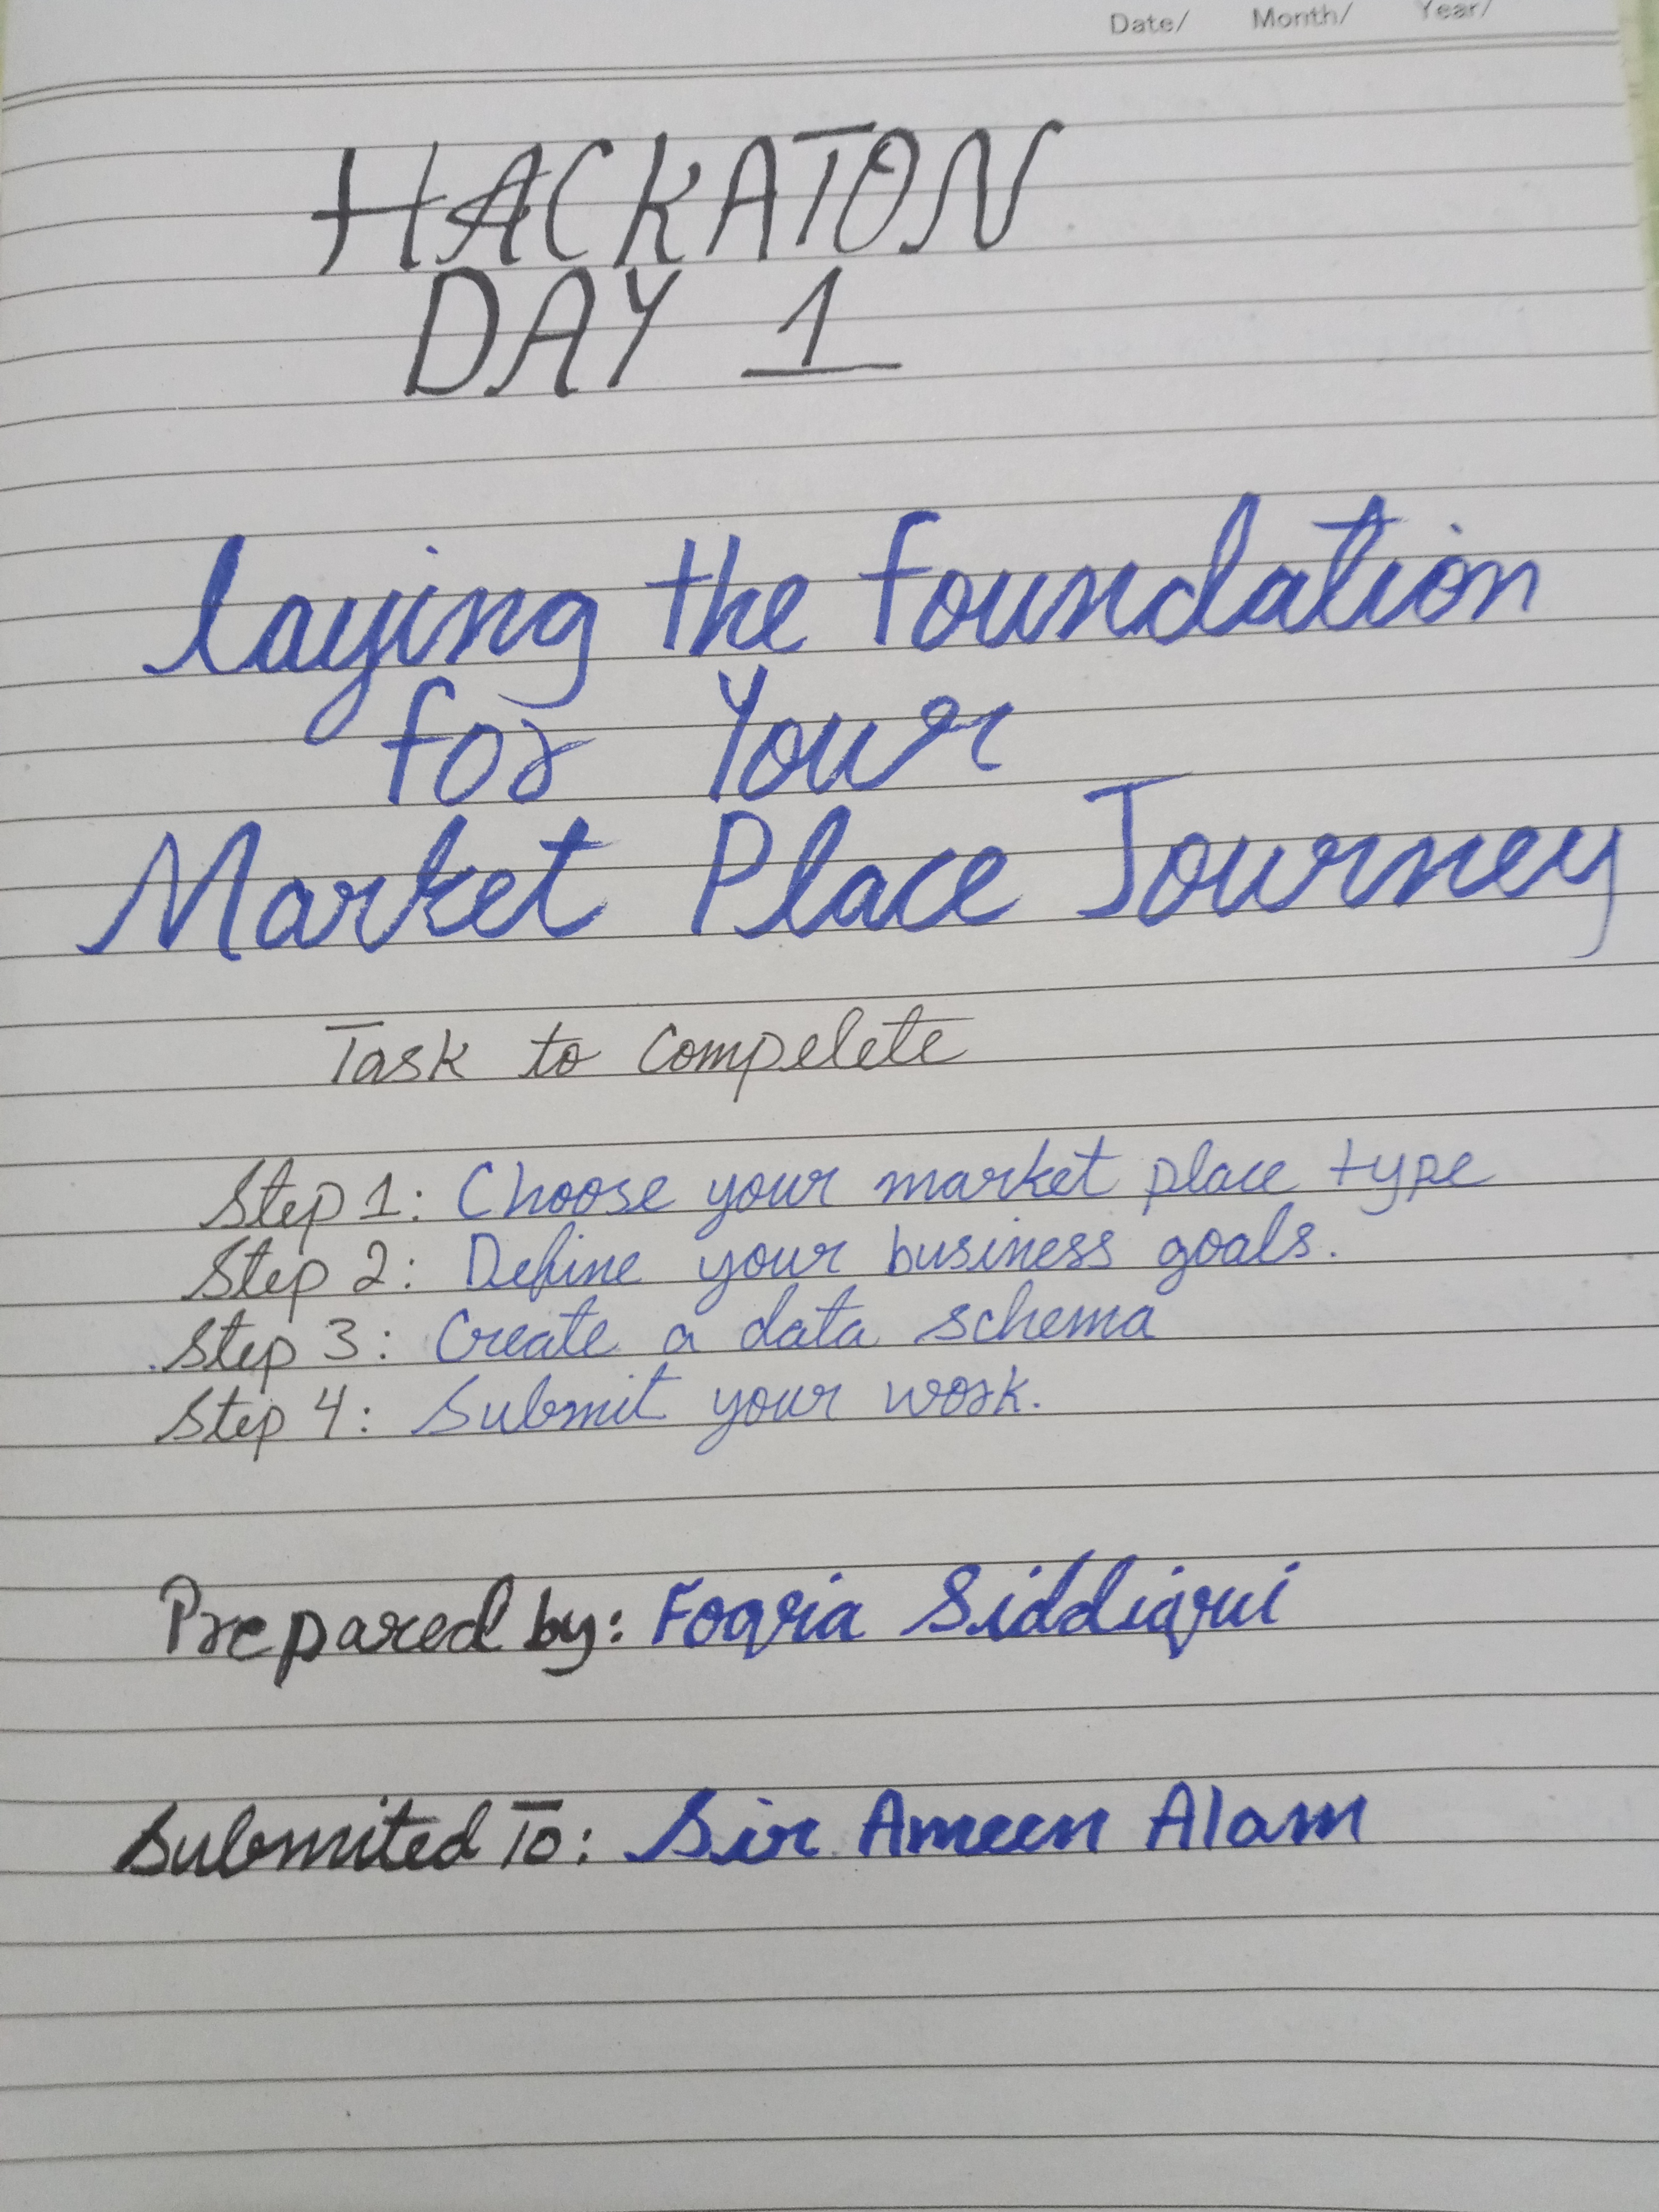 Date/ Month/ Year/
HACKATON
DAY 1
laying the foundation
for Your
Market Place Journey
Task to compelete
Step 1: Choose your market place type
Step 2: Define your business goals.
Step 3: Create a data schema
Step 4: Submit your work.
Prepared by: Foqria Siddiqui
Submited To: Sir Ameen Alam